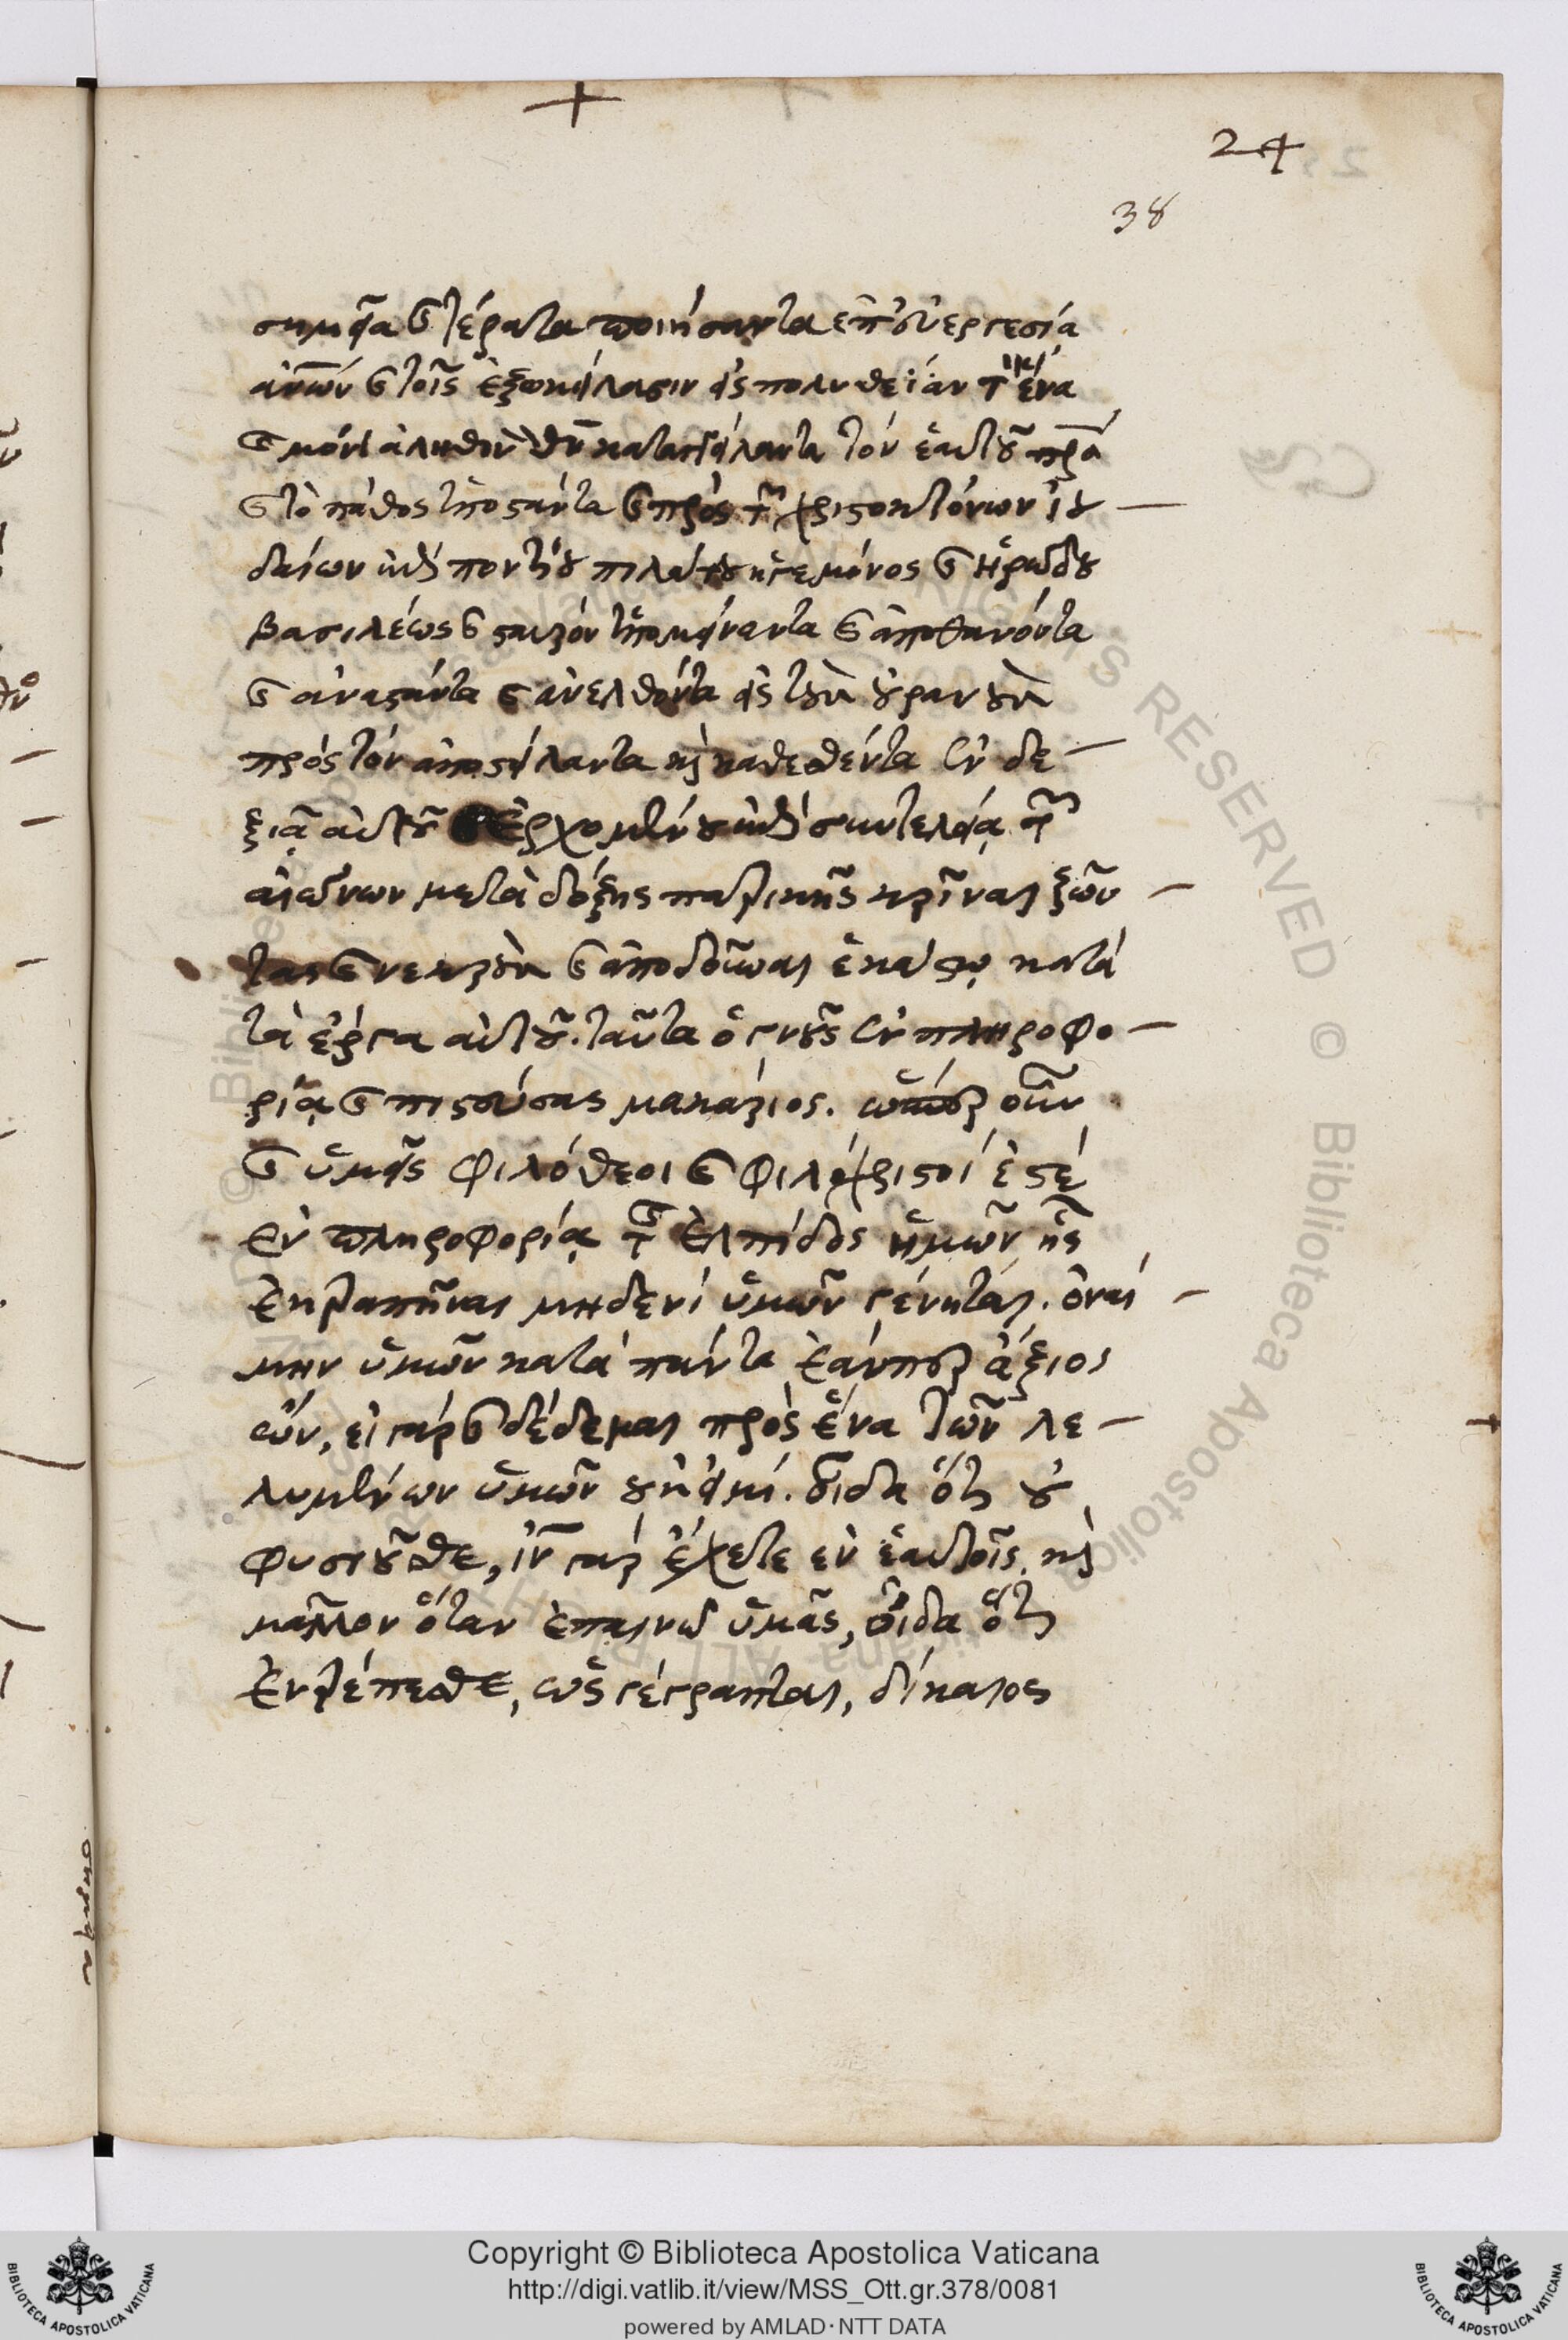 24
38
σημεῖα καὶ τέρατα ποιήσαντα ἐπ' εὐεργεσία
ἀν͞ων καὶ τοῖς ἐξωκείλασιν εἰς πολυθεΐαν τὸν ἕνα
καὶ μόνον ἀληθινὸν θ͞ν καταγγείλαντα τὸν ἑαυτοῦ π͞ρα
καὶ τὸ πάθος ὑποστάντα καὶ πρὸς τῶν χριστοκτόνων ἰου
δαίων ἐπὶ ποντίου πιλάτου ἡγεμόνος καὶ Ἡρώδου
βασιλέως καὶ σταυρὸν ὑπομείναντα καὶ ἀποθανόντα
καὶ ἀναστάντα καὶ ἀνελθόντα εἰς τὸν οὐρανὸν
πρὸς τὸν ἀποστείλαντα καὶ καθεσθέντα ἐν δε
ξιᾷ αὐτοῦ καὶ ἐρχομένου ἐπὶ συντελείᾳ τῶν
αἰώνων μετὰ δόξης πατρικῆς κρῖναι ζῶν
τας καὶ νεκροὺς καὶ ἀποδοῦναι ἑκάστῳ κατὰ
τὰ ἔργα αὐτοῦ. ταῦτα ὁ γνοὺς ἐν πληροφο
ρίᾳ καὶ πιστεύσας μακάριος. ὥσπερ οὖν
καὶ ὑμεῖς φιλόθεοι καὶ φιλόχριστοί ἐστέ
ἐν πληροφορίᾳ τῆς ἐλπίδος ἡμῶν ἧς
ἐκτραπῆναι μηδενὶ ὑμῶν γένηται. ὀναί
μην ὑμῶν κατὰ πάντα ἐάνπερ ἄξιος
ὦν, εἰ γὰρ καὶ δέδεμαι πρὸς ἕνα τῶν λε
λυμένων ὑμῶν οὐκ εἰμί. οἶδα ὅτι οὐ
φυσιοῦσθε, ἰ͞ν γὰρ ἔχετε ἐν ἑαυτοῖς καὶ
μᾶλλον ὅταν ἐπαινῶ ὑμᾶς, οἶδα ὅτι
ἐντρέπεσθε, ὡς γέγραπται, δίκαιος
Copyright © Biblioteca Apostolica Vaticana
http://digi.vatlib.it/view/MSS_Ott.gr.378/0081
powered by AMLAD·NTT DATA